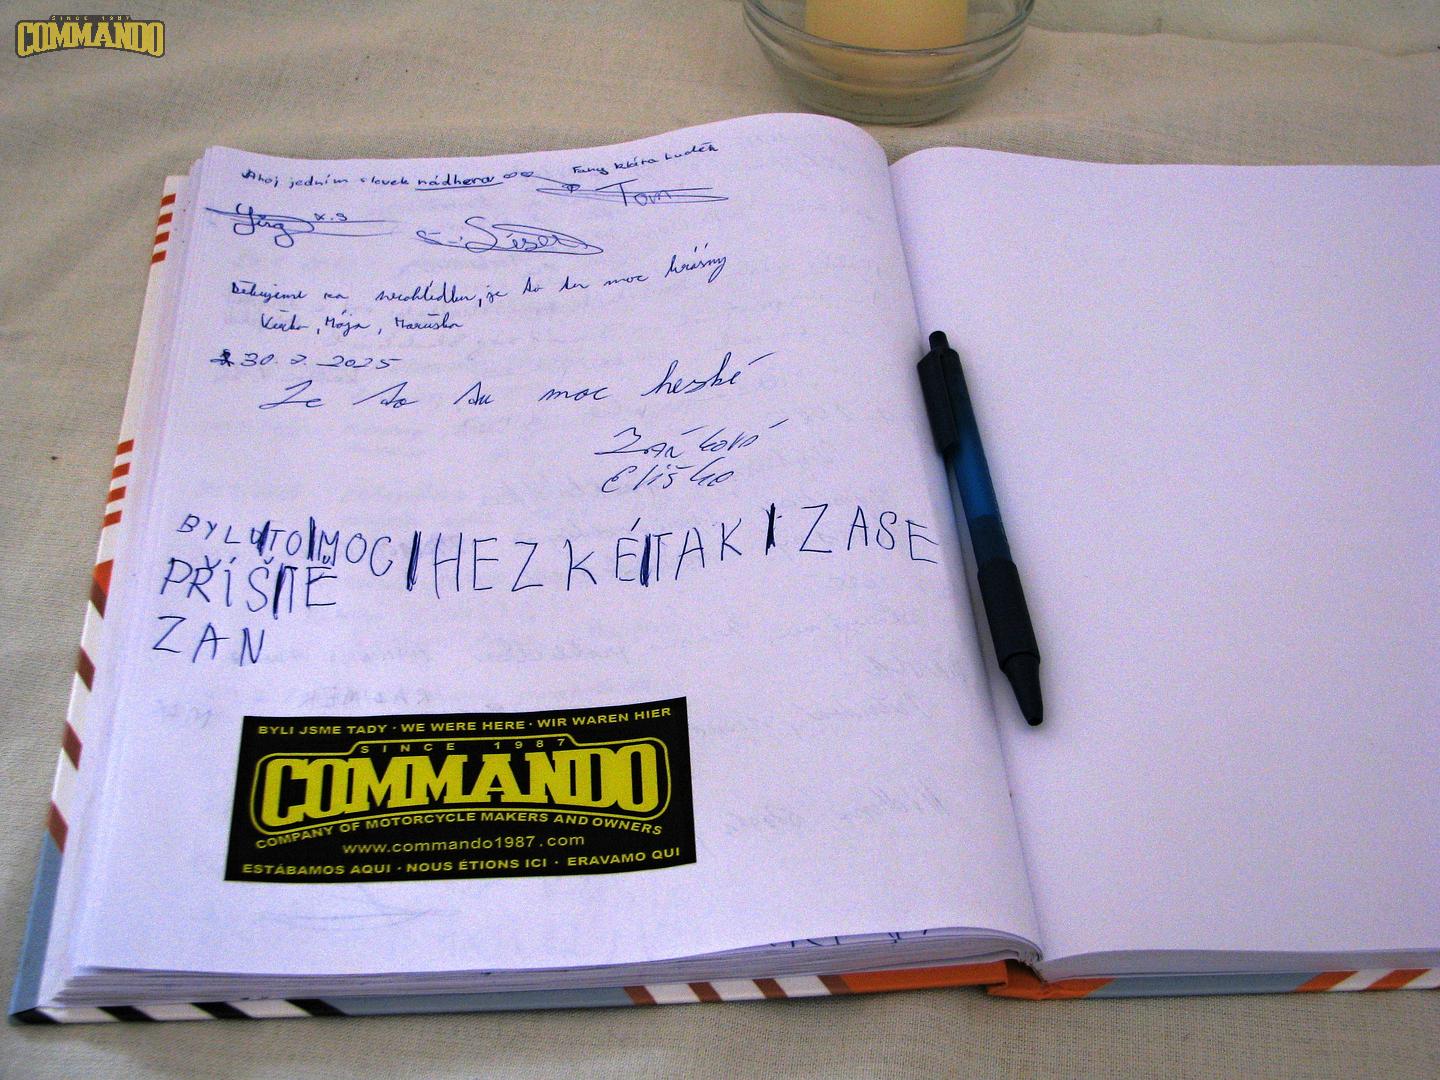 SINCE 1987
COMMANDO
Ahoj jedním slovem nádhera Fany Klára Luděk
Tom
Jirg x.s
Děkujeme za je to tu moc krásný
Verka, Mája, Maruška
30. 7. 2025
Je to tu moc hezké
Zaňková
Eliška
BYLUTO MOC HEZKÉ TAK I ZASE
PŘÍŠTĚ
ZAN
BYLI JSME TADY · WE WERE HERE · WIR WAREN HIER
SINCE 1987
COMMANDO
COMPANY OF MOTORCYCLE MAKERS AND OWNERS
www.commando1987.com
ESTÁBAMOS AQUI · NOUS ÉTIONS ICI · ERAVAMO QUI